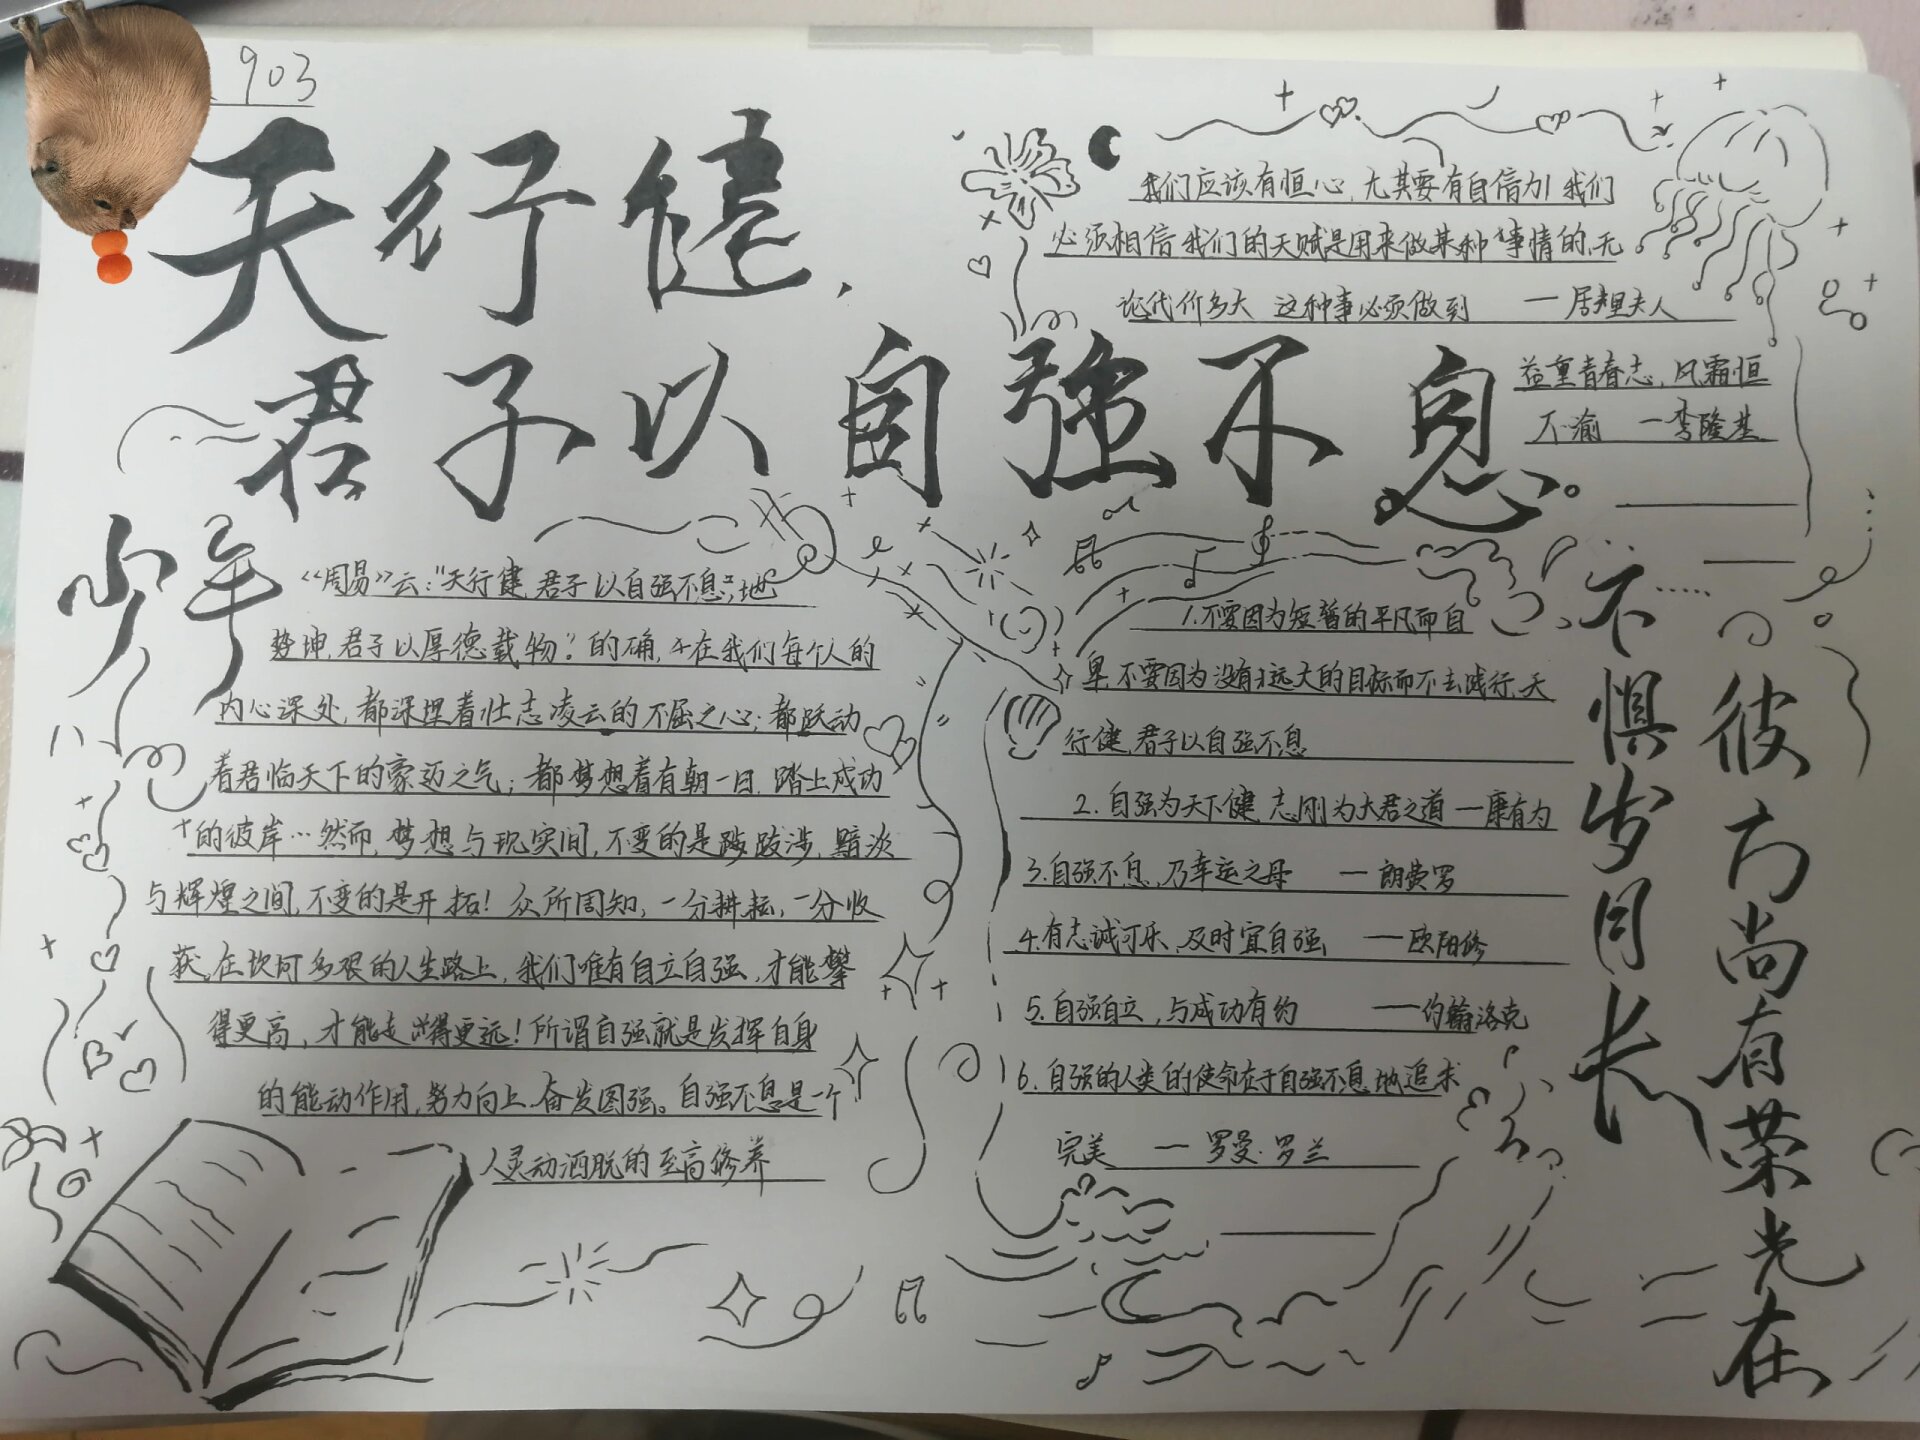 903
天行健，
君子以自强不息。
我们应该有恒心，尤其要有自信力！我们
必须相信我们的天赋是用来做某种事情的，无
论代价多大 这种事必须做到 —居里夫人
益重青春志，风霜恒
不渝 —李隆基
少年
《周易》云：“天行健，君子以自强不息；地
势坤，君子以厚德载物”。的确，在我们每个人的
内心深处，都深埋着壮志凌云的不屈之心；都跃动
着君临天下的豪迈之气；都梦想着有朝一日，踏上成功
的彼岸…然而，梦想与现实间，不变的是跋涉，黯淡
与辉煌之间，不变的是开拓！众所周知，一分耕耘，一分收
获，在坎坷多艰的人生路上，我们唯有自立自强，才能攀
得更高，才能走得更远！所谓自强就是发挥自身
的能动作用，努力向上，奋发图强。自强不息是一个
人灵动洒脱的至高修养
1.不要因为短暂的平凡而自
卑，不要因为没有远大的目标而不去践行，天
行健，君子以自强不息
2.自强为天下健，志刚为大君之道 —康有为
3.自强不息，乃幸运之母 —朗费罗
4.有志诚可乐，及时宜自强 —欧阳修
5.自强自立，与成功有约 —约翰洛克
6.自强的人类的使命在于自强不息地追求
完美 —罗曼·罗兰
不惧岁月长
彼方尚有荣光在